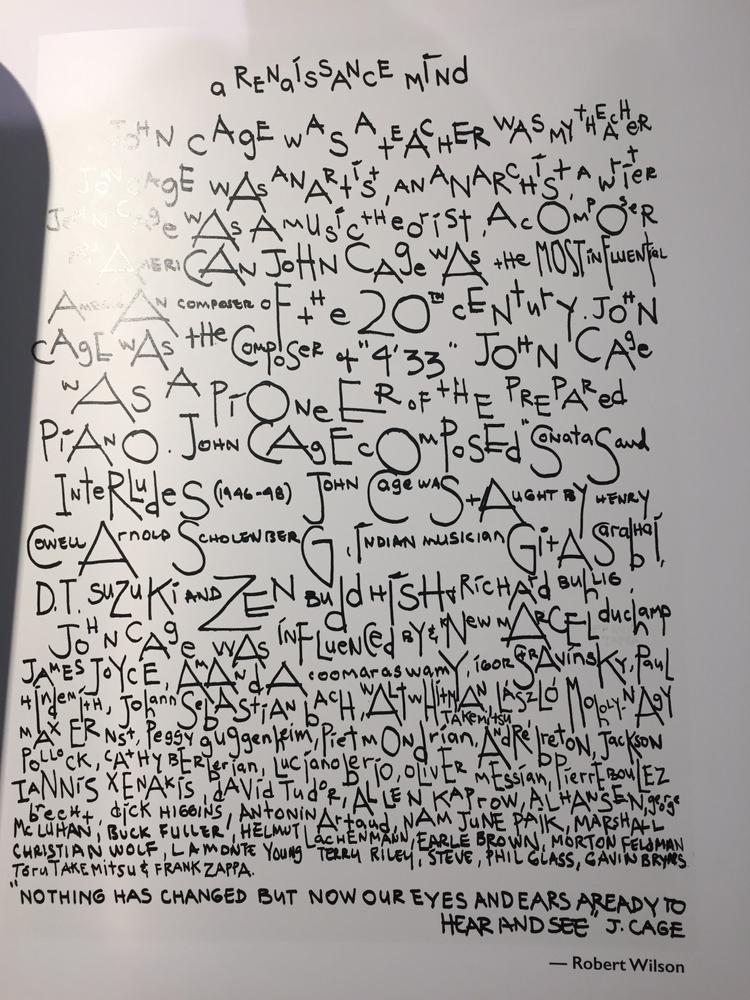 a RENaiSSANCE MiNd
JOHN CAgE WAS A tEACHER WAS MY tHEACHeR
JOHN CAgE WAS AN ARtiSt, AN ANARCHiSt, A WRitER
JOHN CAge WAS A MUSic tHeoRist, A cOMPOSeR
AN AMERICAN JOHN CAge WAS tHe MOST iNFLUENtial
AMERICAN COMPOSER OF tHe 20TH CENtuRY. JOHN
CAgE WAS tHe COMPOSER of "4'33" JOHN CAge
WAS A PiONeER OF tHE PREPARed
PiANO. JOHN CAgE cOMPOSEd "SONataS and
INteRLudeS (1946-48) JOHN Cage WAS tAUGHT BY HENRY
COWELL ARNOLD SCHOLENBERG, INDIAN MUSICIAN GitA SaRabHai,
D.T. SUZUKi AND ZEN BUddHiSH & RiCHARd BUHLIG.
JOHN CAge WAS iNFLUENCEd BY & KNEW MARCEL duchamp
JAMES JOYCE, AMANdA coomaraswamY, iGOR StRAVinSKY, PAUL
HindemitH, JoHann SeBASTIAN bACH, WALt WHitMAN, LASZLÓ MOHOLY-NAGY
TAKEMitsu,
MAX ERNSt, PEggY guggenheim, PiET MONdrian, ANdRE bretoN, JACKSON
POLLOCK, CATHY BERberian, Luciano berio, OLiVER MESSian, PiERRE BOULEZ
IANNIS XENAKIS, dAViD TudoR, ALLEN KAPROW, AL HANSEN, george
brecHt, dICK HIGGINS, ANTONIN Artaud, NAM JUNE PAIK, MARSHALL
Mc LUHAN, BUCK FULLER, HELMUT LACHENMANN, EARLE BROWN, MORTON FELDMAN
CHRISTIAN WOLF, LA MONTE YOUNG TERRY RILEY, STEVE, PHIL GLASS, GAVIN BRYARS
Toru TAKEMitsu & FRANK ZAPPA.
"NOTHING HAS CHANGED BUT NOW OUR EYES AND EARS AREADY TO
HEAR AND SEE" J. CAGE
— Robert Wilson